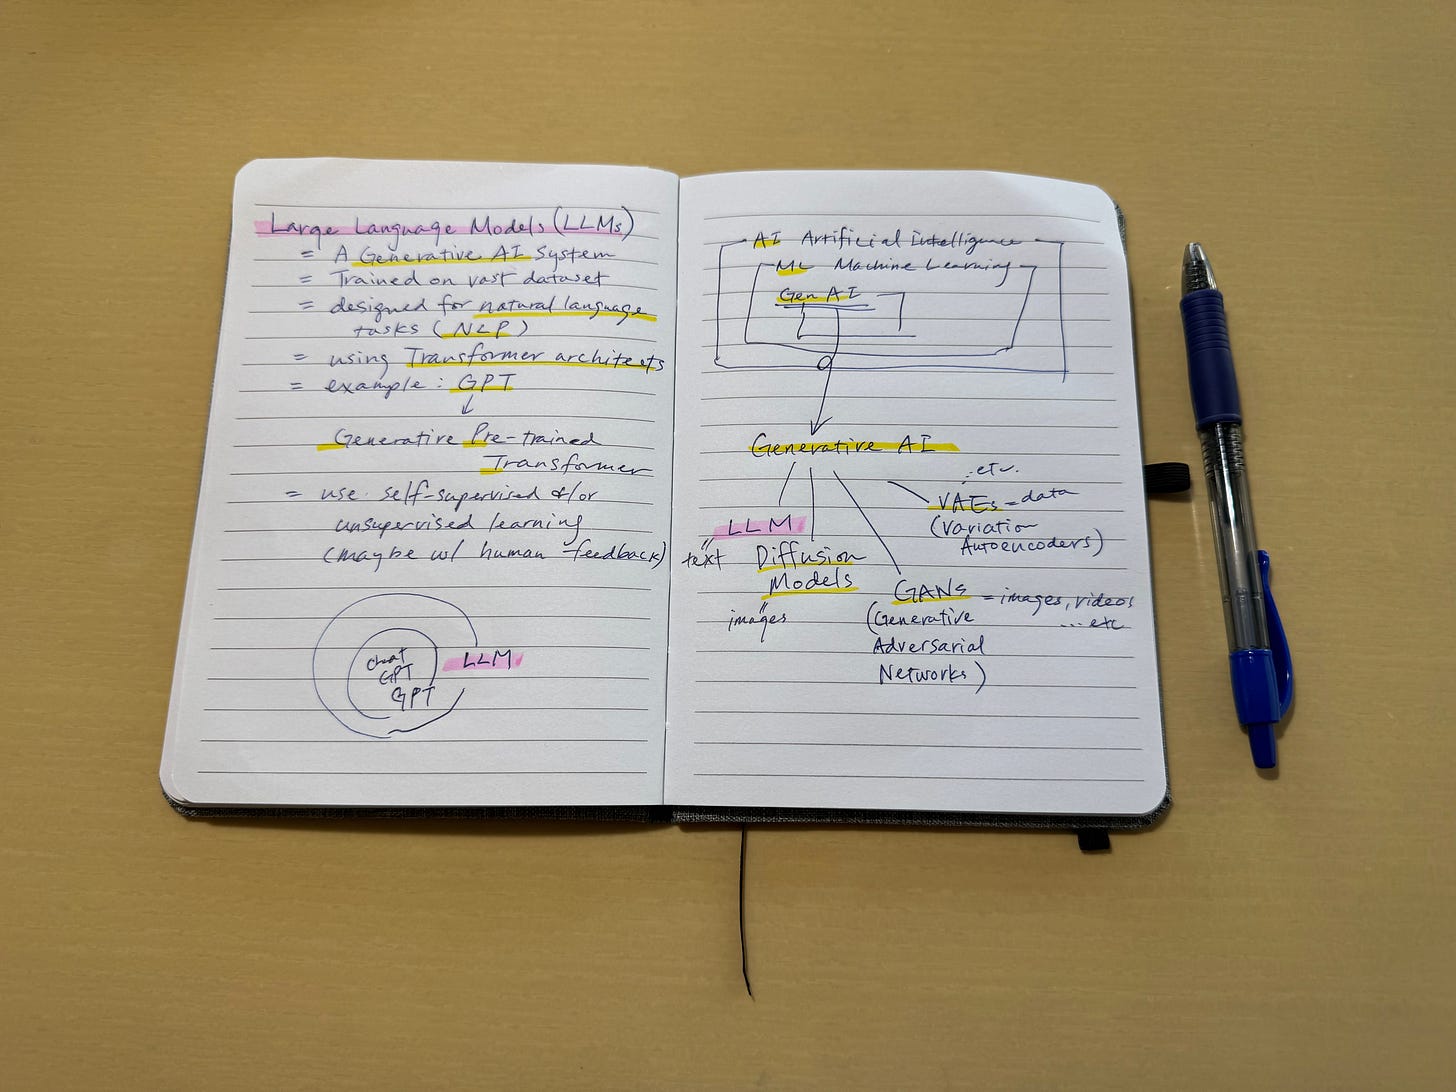 Large Language Models (LLMs)
= A Generative AI System
= Trained on vast dataset
= designed for natural language
tasks (NLP)
= using Transformer architects
= example: GPT
↓
Generative Pre-trained
Transformer
= use self-supervised &/or
unsupervised learning
(maybe w/ human feedback)
Chat
GPT
GPT
LLM
AI Artificial Intelligence
ML Machine Learning
Gen AI
Generative AI
LLM
"
text
Diffusion
Models
"
images
GANs = images, videos
... etc
(Generative
Adversarial
Networks)
...etc.
VAEs = data
(Variation
Autoencoders)